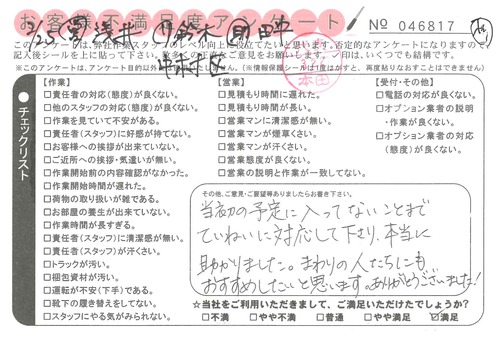 お客様不満足度アンケート
No 046817
このアンケートは、弊社作業スタッフのレベル向上に役立てたいと思います。否定的なアンケートになりますので、
※このアンケートは、アンケート目的以外
(※情報保護シールは1度はがすと、再度貼りなおすことはできません)
チェックリスト
【作業】
□責任者の対応(態度)が良くない。
□他のスタッフの対応(態度)が良くない。
□作業を見ていて不安がある。
□責任者(スタッフ)に好感が持てない。
□お客様への挨拶が出来ていない。
□ご近所への挨拶・気遣いが無い。
□作業開始前の内容確認がなかった。
□作業開始時間が遅れた。
□荷物の取り扱いが雑である。
□お部屋の養生が出来ていない。
□作業時間が長すぎる。
□責任者(スタッフ)に清潔感が無い。
□責任者(スタッフ)が汗くさい。
□トラックが汚い。
□梱包資材が汚い。
□運転が不安(下手)である。
□靴下の履き替えをしてない。
□スタッフにやる気がみられない。
【営業】
□見積もり時間に遅れた。
□見積もり時間が長い。
□営業マンに清潔感が無い。
□営業マンが煙草くさい。
□営業マンが汗くさい。
□営業態度が良くない。
□営業の説明と作業が一致してない。
【受付・その他】
□電話の対応が良くない。
□オプション業者の説明
・作業が良くない。
□オプション業者の対応
(態度)が良くない。
その他、ご意見・ご要望等ありましたらお書き下さい。
当初の予定に入ってないことまで
ていねいに対応して下さり、本当に
助かりました。まわりの人たちにも
おすすめしたいと思います。ありがとうございました!
☆当社をご利用いただきまして、ご満足いただけたでしょうか?
□不満 □やや不満 □普通 □やや満足 ☑満足